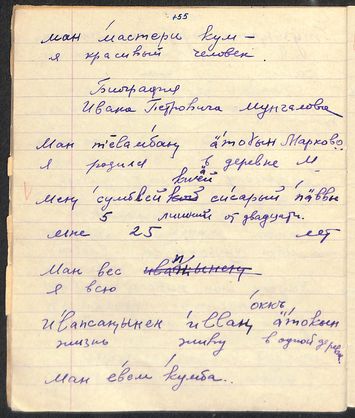 155
ман мастери кум –
я красивый человек.
Биография
Ивана Петровича Мунгалова
Ман тёвамбаӷ ӓтоӷын Марково.
я родился в деревне М
меӷу сумблей сисарый пӓввы
5 лишний от двадцати.
мне 25 лет
Ман вес
я всю
оккъ
ӣвапсаӷынен илваӷ ӓтоӷын
жизнь живу в одной дерев.
Ман ӓвем кумба..